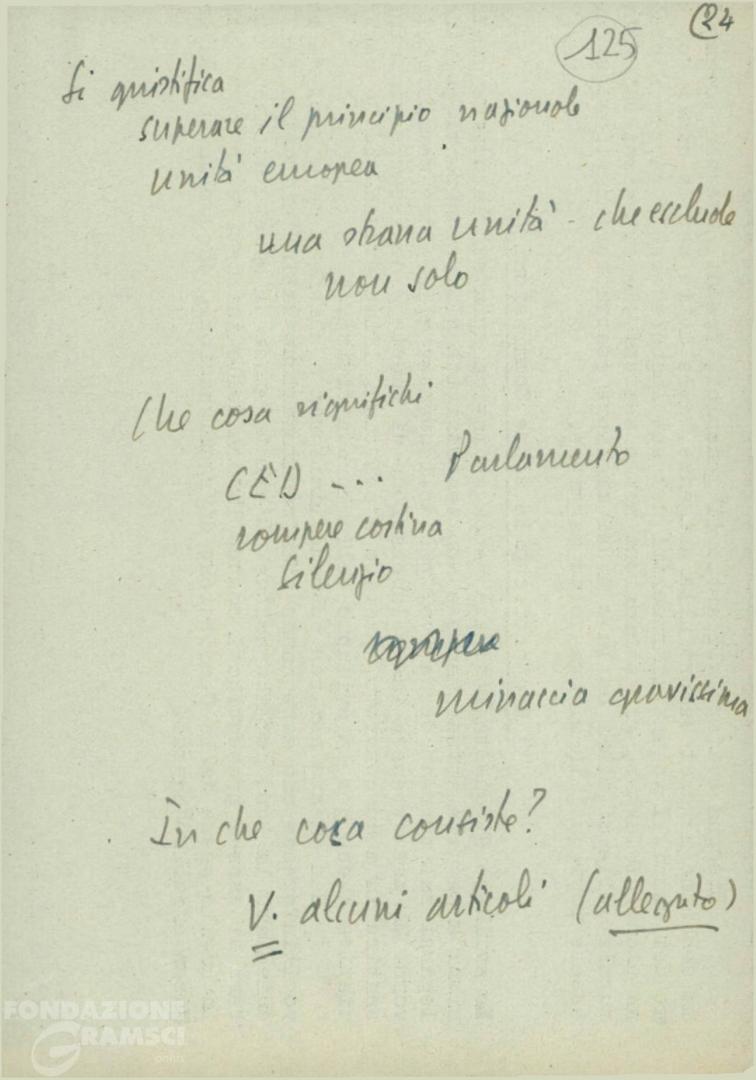 (24
125
Si giustifica
superare il principio nazionale
unità europea
una strana unità - che esclude
non solo
Che cosa significhi
CED ... Parlamento
rompere cortina
silenzio
minaccia gravissima
In che cosa consiste?
V. alcuni articoli (allegato)
FONDAZIONE
GRAMSCI
onlus